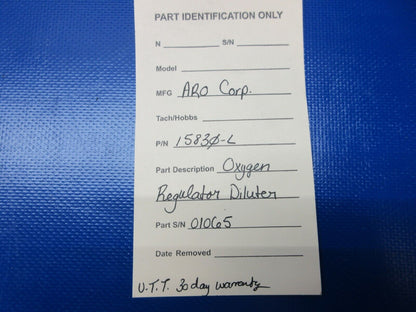 PART IDENTIFICATION ONLY
N S/N
Model
MFG ARO Corp.
Tach/Hobbs
P/N 1583Ø-L
Part Description Oxygen
Regulator Diluter
Part S/N 01065
Date Removed
U.T.T. 30 day warranty